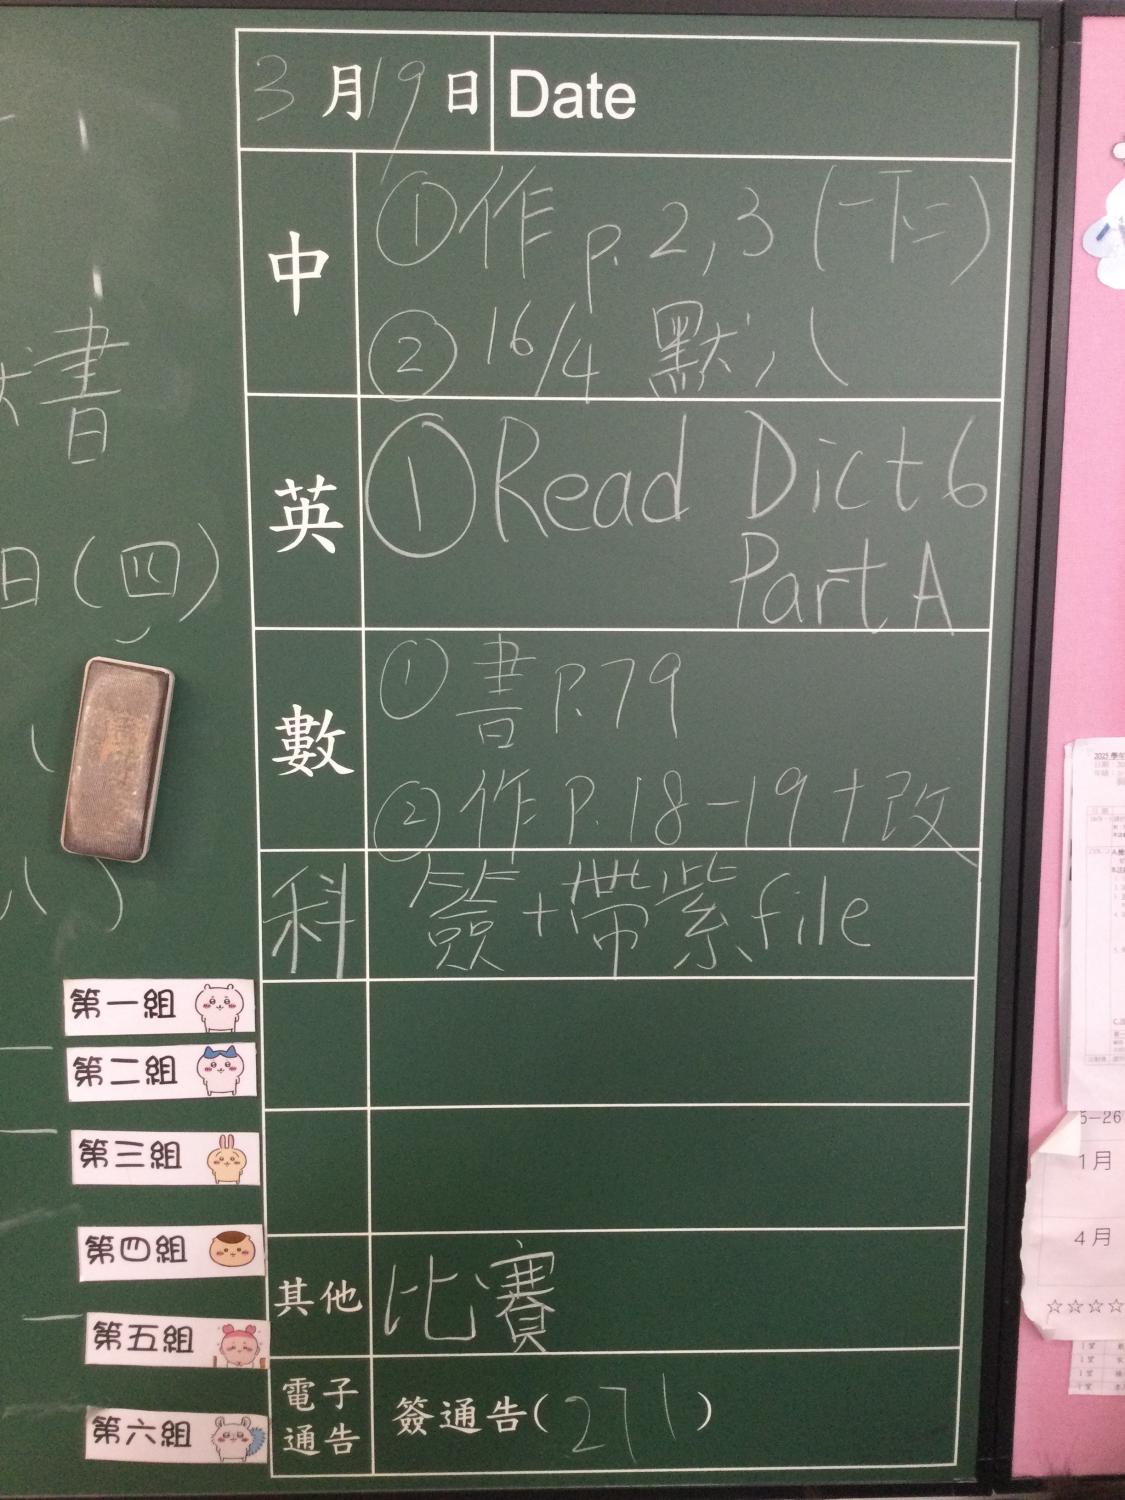 3月19日 Date
中 ①作 p.2,3 (一下二)
② 16/4 默八
英 ①Read Dict 6
Part A
數 ①書 P.79
②作 P.18-19+改
科 簽+帶紫file
其他 比賽
電子通告 簽通告(271)
書
日(四)
八)
第一組
第二組
第三組
第四組
第五組
第六組
5-26
1月
4月
☆☆☆☆